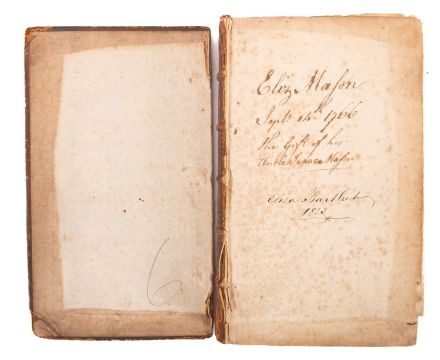 6
Eliz Maſon
Septr 14th 1766
the Gift of her
Uncle Maſon
Eliza Bartlett
1823